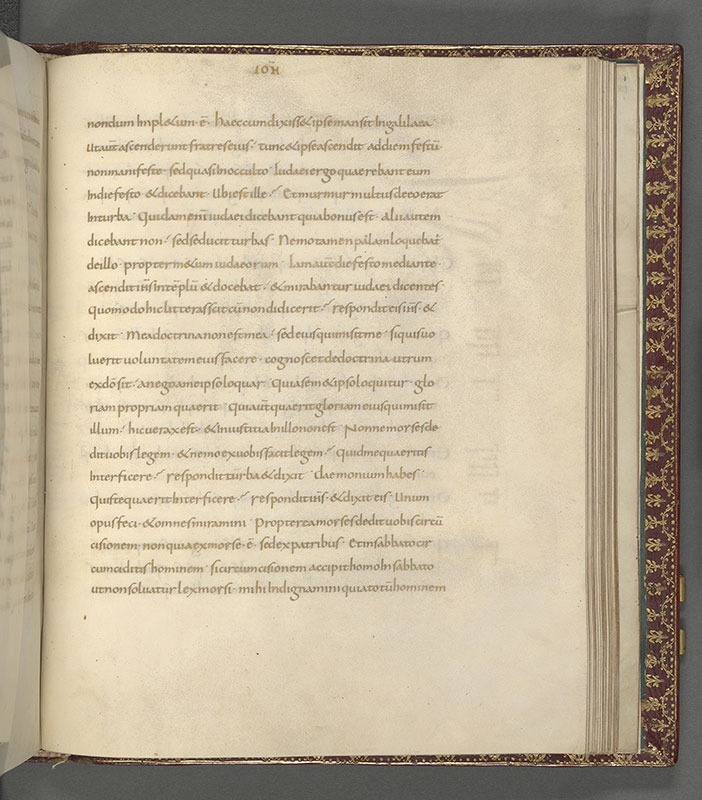 IOH̄
nondum Impl&um · ē · haec cum dixiss& ipse mansit In galilaea
Ut aut̄ ascenderunt fratres eius · tunc & ipse ascendit ad diem festū
non manifeste · sed quasi In occulto Iudaei ergo quaerebant eum
In die festo & dicebant Ubi est ille Et murmur multus de eo erat
In turba · Quidam enī iudaei dicebant quia bonus est · alii autem
dicebant non · sed seducit turbas · Nemo tamen palam loquebat̄
de illo · propter m&um iudaeorum · Iam aut̄ die festo mediante ·
ascendit ih̄s in templū & docebat · & mirabantur iudaei dicentes
quomodo hic litteras scit cū non didicerit respondit eis ih̄s &
dixit Mea doctrina non est mea · sed eius qui misit me si quis uo
luerit uoluntatem eius facere · cognoscet de doctrina utrum
ex dō sit · an ego a me ipso loquar Qui a sem&ipso loquitur · glo
riam propriam quaerit Qui aut̄ quaerit gloriam eius qui misit
illum · hic uerax est · & Iniustitia In illo non est Nonne moyses de
dit uobis legem · & nemo ex uobis facit legem Quid me quaeritis
Interficere respondit turba & dixit Daemonium habes
quis te quaerit Interficere respondit ih̄s · & dixit eis Unum
opus feci · & omnes miramini Propterea moyses dedit uobis circū
cisionem · non quia ex moyse · ē · sed ex patribus Et in sabbato cir
cumciditis hominem si circumcisionem accipit homo In sabbato
ut non soluatur lex moysi · mihi Indignamini quia totū hominem